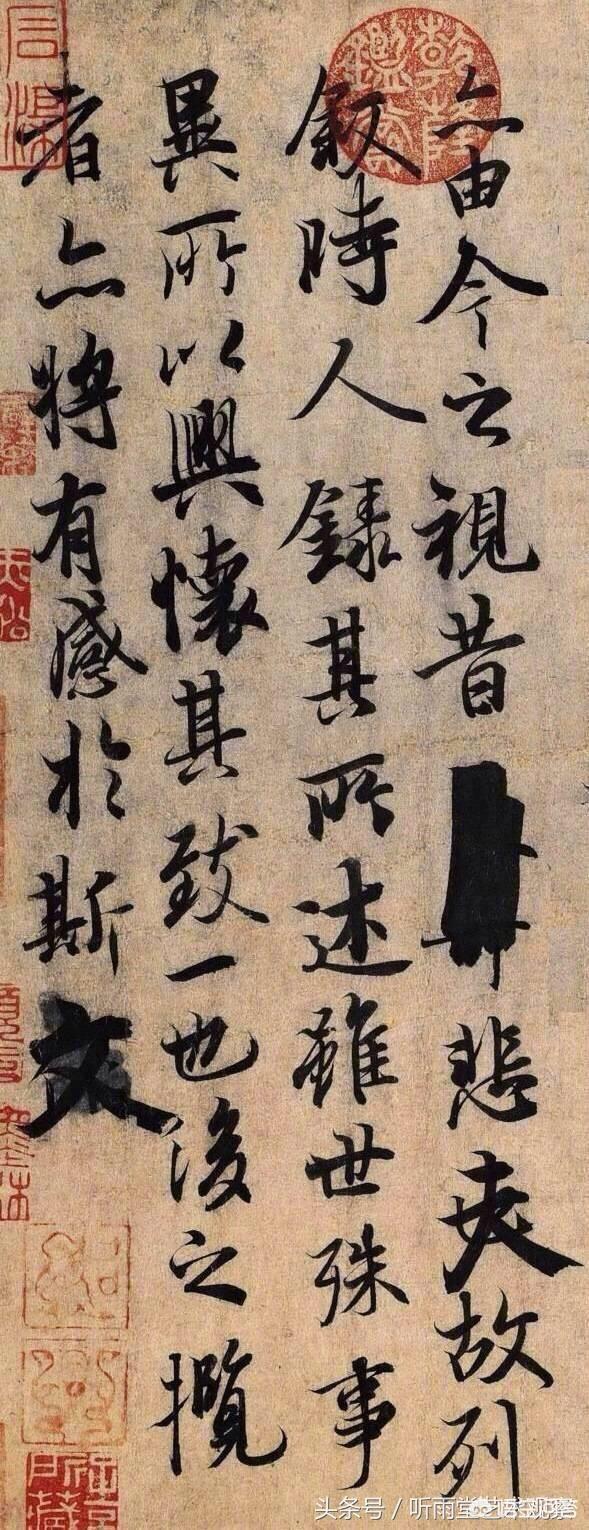 亦由今之視昔悲夫故列
叙時人錄其所述雖世殊事
異所以興懷其致一也後之攬
者亦將有感於斯文
頭条号／听雨堂